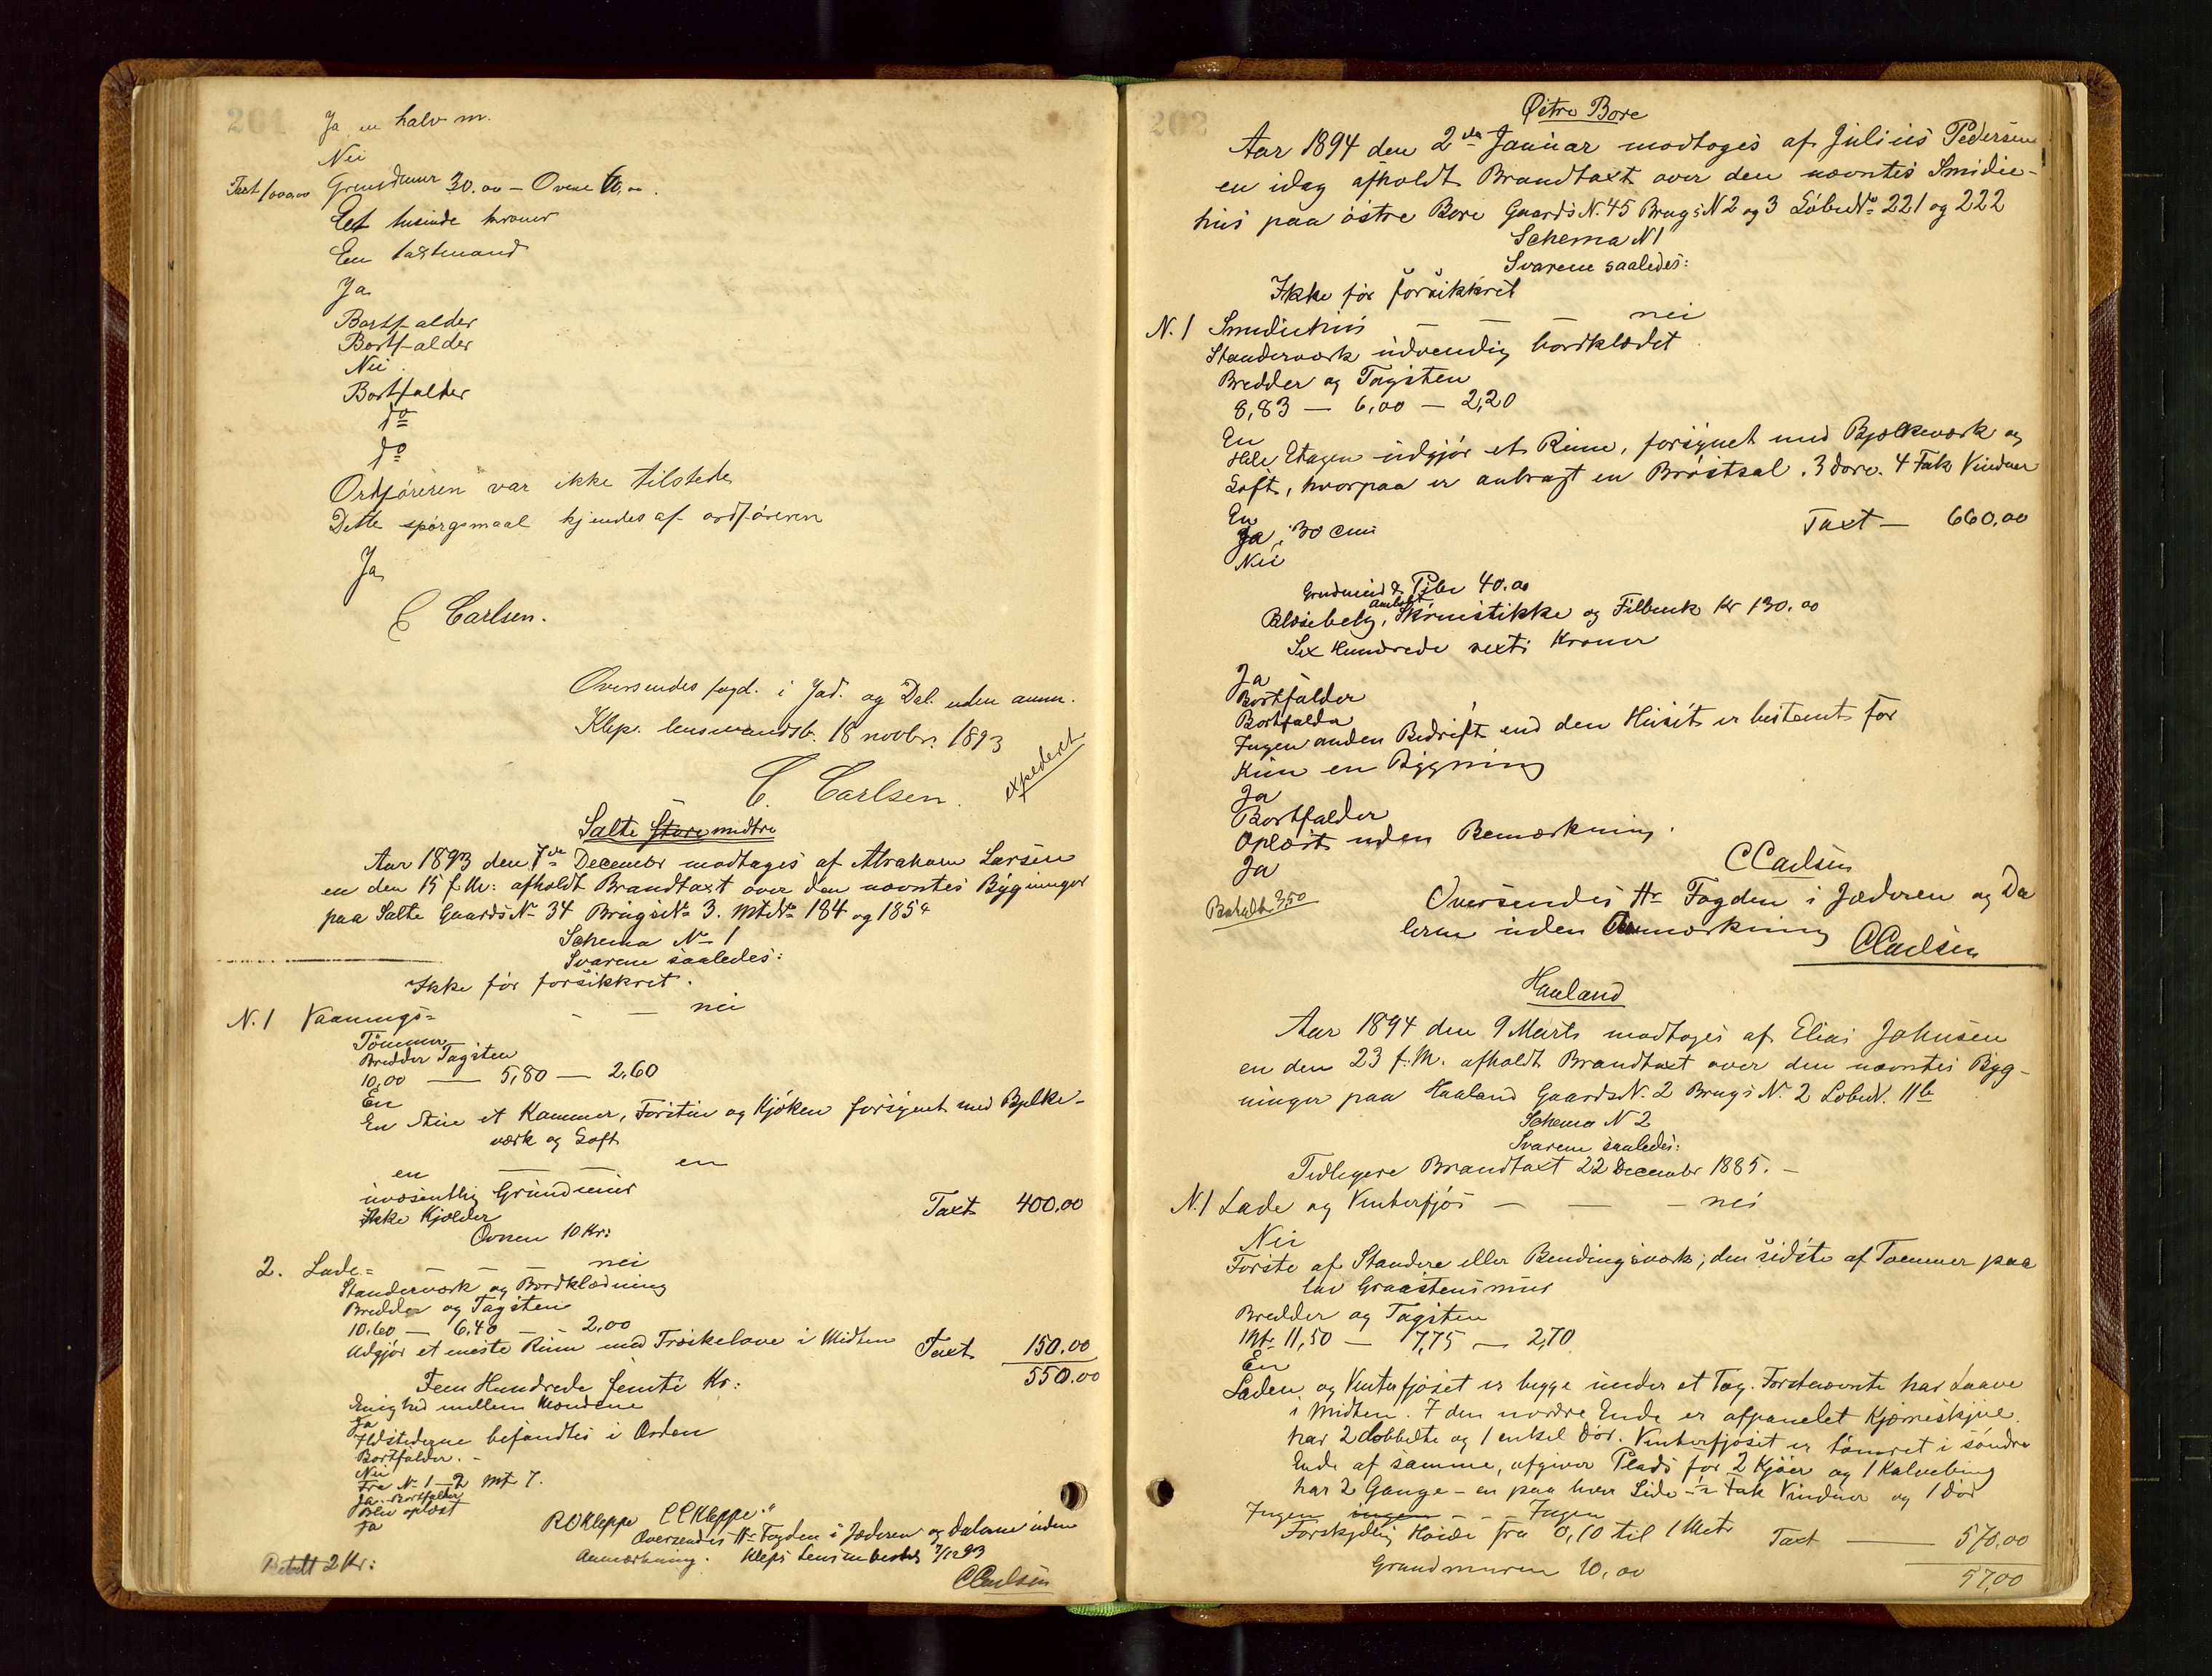 201
Ja en halv m.
Nei
Taxt 1000.00 Grundmur 30.00 – Ovene
Eet tusinde kroner
En taxtmand
Ja
Bortfalder
Bortfalder
Nei.
Bortfalder
do
do
Ordføreren var ikke tilstede
Dette spørgsmaal kjendes af ordføreren
Ja
C Carlsen.
Oversendes fogd. i Jæd. og Dal. uden anm.
Klep. lensmandsb. 18 novbr. 1893
C. Carlsen.
expederet
Salte Store midtre
Aar 1893 den 7de Decembr modtages af Abraham Larsen
en den 15 f.M: afholdt Brandtaxt over den nævntes Bygninger
paa Salte GaardsNo 34 BrugsNo 3. MtNo 184 og 185a
Schema No 1
Svarene saaledes:
Ikke før forsikkret.
N. 1 Vaanings= - — nei
Tømmer
Bredder Tagsten
10,00 — 5,80 — 2,60
En
En Stue et Kammer, Forstue og Kjøken forsynet med Bjelke-
værk og Loft
en — — en
uvæsentlig Grundmur
Ikke Kjælder Taxt 400.00
Ovnen 10 Kr:
2. Lade= — — — nei
Standerværk og Bordklædning
Bredder og Tagsten
10.60 — 6,40 — - 2,00
Udgjør et eneste Rum med Træskelave i Midten Taxt 150.00
Fem Hundrede femti Kr: 550.00
Enighed mellem Mændene
Ja
Ildstederne befandtes i Orden
Bortfalder. -
Nei
Fra No 1–2 mt 7.
Ja. Bortfalder
Blev oplæst
Ja
R O Kleppe C C Kleppe
Oversendes Hr Fogden i Jæderen og Dalerne uden
Anmærkning. Kleps Lensm bestill 7/12 93
Betalt 2 Kr:
CCarlsen
202
Østre Bore
Aar 1894 den 2den Januar modtoges af Julius Pedersen
en idag afholdt Brandtaxt over den nævntes Smidie-
hus paa østre Bore GaardsN. 45 BrugsN 2 og 3 LøbeNo 221 og 222
Schema N 1
Svarene saaledes:
Ikke før forsikkret
N. 1 Smidiehus — — — nei
Standerværk udvendig bordklædet
Bredder og Tagsten
8,83 — 6,00 — 2,20
En
Hele Etagen udgjør et Rum, forsynet med Bjælkeværk og
Loft, hvorpaa er anbragt en Brøstsal. 3 døre. 4 Fak Vinduer
En
Ja, 30 cm Taxt — 660,00
Nei
Grndmur & Pibe 40.00
Blæsebelg, Ambolt, Skruestikke og Filbenk Kr 130.00
Sex Hundrede sexti Kroner
Ja
Bortfalder
Bortfalder
Ingen anden Bedrift end den Huset er bestemt for
Kun en Bygning
Ja
Bortfalder
Oplæst uden Bemærkning.
Ja
CCarlsen
Betalt 3,50
Oversendes Hr Fogden i Jæderen og Da
lerne uden Anmærkning
CCarlsen
Haaland
Aar 1894 den 9 Marts modtoges af Elias Johnsen
en den 23 f.M. afholdt Brandtaxt over den nævntes Byg-
ninger paa Haaland GaardsN. 2 Brugs N. 2 LøbeN. 11b
Schema N 2
Svarene saaledes:
Tidligere Brandtaxt 22 Decembr 1885. –
N. 1 Lade og Vinterfjøs — — – nei
Nei
Første af Standere eller Bendingsværk; den sidste af Tømmer paa
lav Graastensmur
Bredder og Tagsten
Mtr 11,50 — 7,75 — 2,70
En
Laden og Vinterfjøset er begge under et Tag. Førstnævnte har Laave
i Midten. I den nordre Ende er afpanelet Kjørneskjul
har 2 dobbelte og 1 enkel Dør. Vinterfjøset er tømret i søndre
Ende af samme, afgiver Plads for 2 Kjøer og 1 Kalvebing
har 2 Gange – en paa hver Side – ½ Fak Vinduer og 1 dør
Ingen ingen – – Ingen
Forskjellig Høide fra 0,10 til 1 Metr Taxt — 570.00
Grundmuren 10,00 57,00